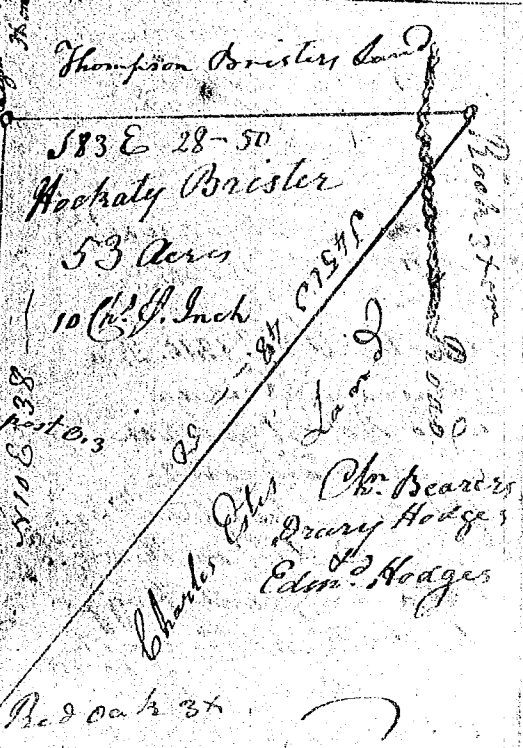 Thompson Bristers Land
S 83 E 28-50
Hockaty Brister
53 Acres
10 Chs P. Inch
N 10 E 38
post O.3
S 45 W 48
Rock 3x
Road
Charles Estes Land
Chn. Bearers
Drury Hodges
&
Edmd. Hodges
Red Oak 3x